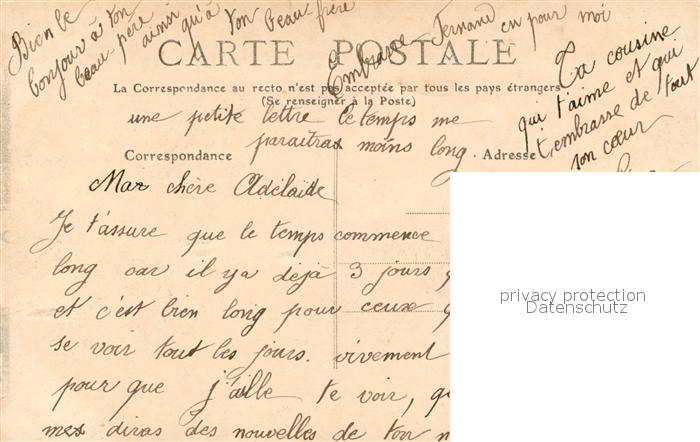 Bien le
bonjour à ton
beau père ainsi qu'à ton beau frère
Embrasse Fernand en pour moi
CARTE POSTALE
La Correspondance au recto n'est pas acceptée par tous les pays étrangers
(Se renseigner à la Poste)
une petite lettre le temps me
paraitras moins long.
Ta cousine
qui t'aime et qui
t'embrasse de tout
son cœur
Correspondance
Adresse
Ma chère Adélaïde
Je t'assure que le temps commence
long car il y a déjà 3 jours
et c'est bien long pour ceux
se voir tout les jours. vivement
pour que j'aille te voir,
mes diras des nouvelles de ton
privacy protection
Datenschutz